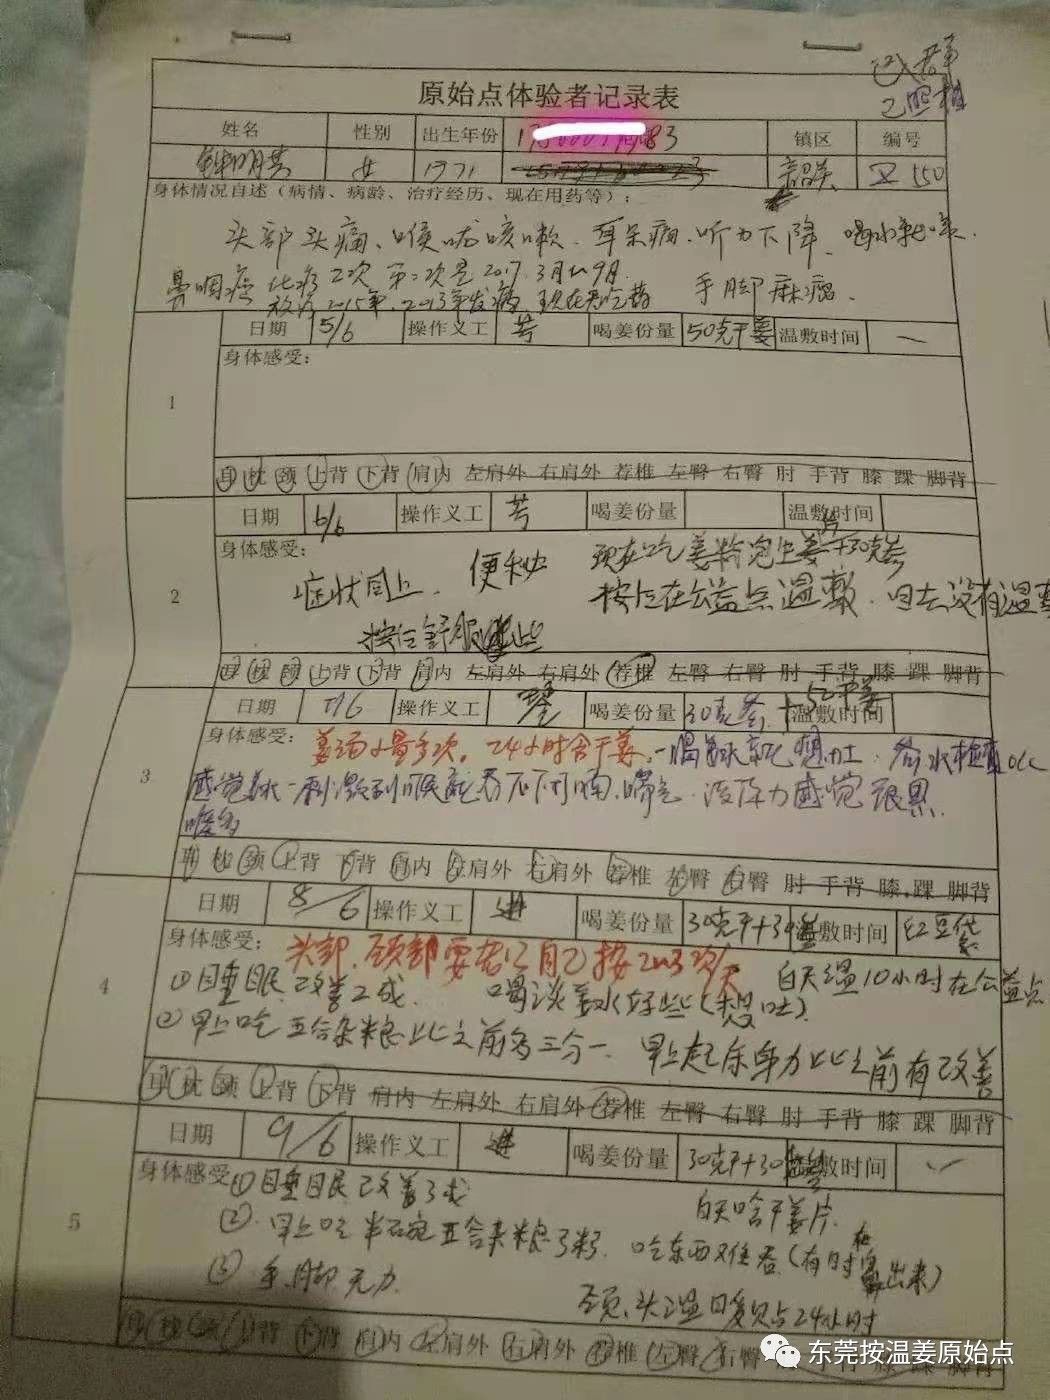 入群
已照相
原始点体验者记录表
姓名 性别 出生年份 镇区 编号
明芳 女 1971 韶关 550
身体情况自述（病情、病龄、治疗经历、现在用药等）：
头部头痛、喉咙咳嗽、耳朵痛、听力下降、喝水就咳.
鼻咽癌 化疗2次 第二次是2017.3月 9月. 手脚麻痛、
放疗2015年、2013年发病
1
日期 5/6 操作义工 芳 喝姜份量 50克干姜 温敷时间 一
身体感受：
耳 枕 颈 上背 下背 肩内 左肩外 右肩外 荐椎 左臀 右臀 肘 手背 膝 踝 脚背
2
日期 6/6 操作义工 芳 喝姜份量 温敷时间
身体感受： 便秘 现在吃姜粉泡生姜 30克参
症状同上. 按后在公益点温敷. 回去没有温敷
按后舒服 些
耳 枕 颈 上背 下背 肩内 左肩外 右肩外 荐椎 左臀 右臀 肘 手背 膝 踝 脚背
3
日期 7/6 操作义工 喝姜份量 30克参 温敷时间
身体感受： 姜汤少量多次。24小时含干姜.一喝 水就想吐.
感觉 一刺激到喉咙吞不下 喃. 没体力感觉很累
嘴
耳 枕 颈 上背 下背 肩内 左肩外 右肩外 荐椎 左臀 右臀 肘 手背 膝 踝 脚背
4
日期 8/6 操作义工 进 喝姜份量 30克干+30 温敷时间 红豆袋
身体感受： 头部.颈部要 自己按2-3次/天
①目垂眠已改善2成. 喝淡姜水好些(想吐). 白天温10小时在公益点
②早上吃五合杂粮比之前多三分一. 早上起床体力比之前有改善
耳 枕 颈 上背 下背 肩内 左肩外 右肩外 荐椎 左臀 右臀 肘 手背 膝 踝 脚背
5
日期 9/6 操作义工 进 喝姜份量 30克干+30 温敷时间
身体感受 ①目垂目民已改善3成 白天含干姜片.
②.早上吃半碗五合杂粮粥. 吃东西难吞(有时 出来)
③手.脚无力. 颈、头温 24小时
耳 枕 颈 上背 下背 肩内 左肩外 右肩外 荐椎 左臀 右臀 肘 手背 膝 踝 脚背
东莞按温姜原始点